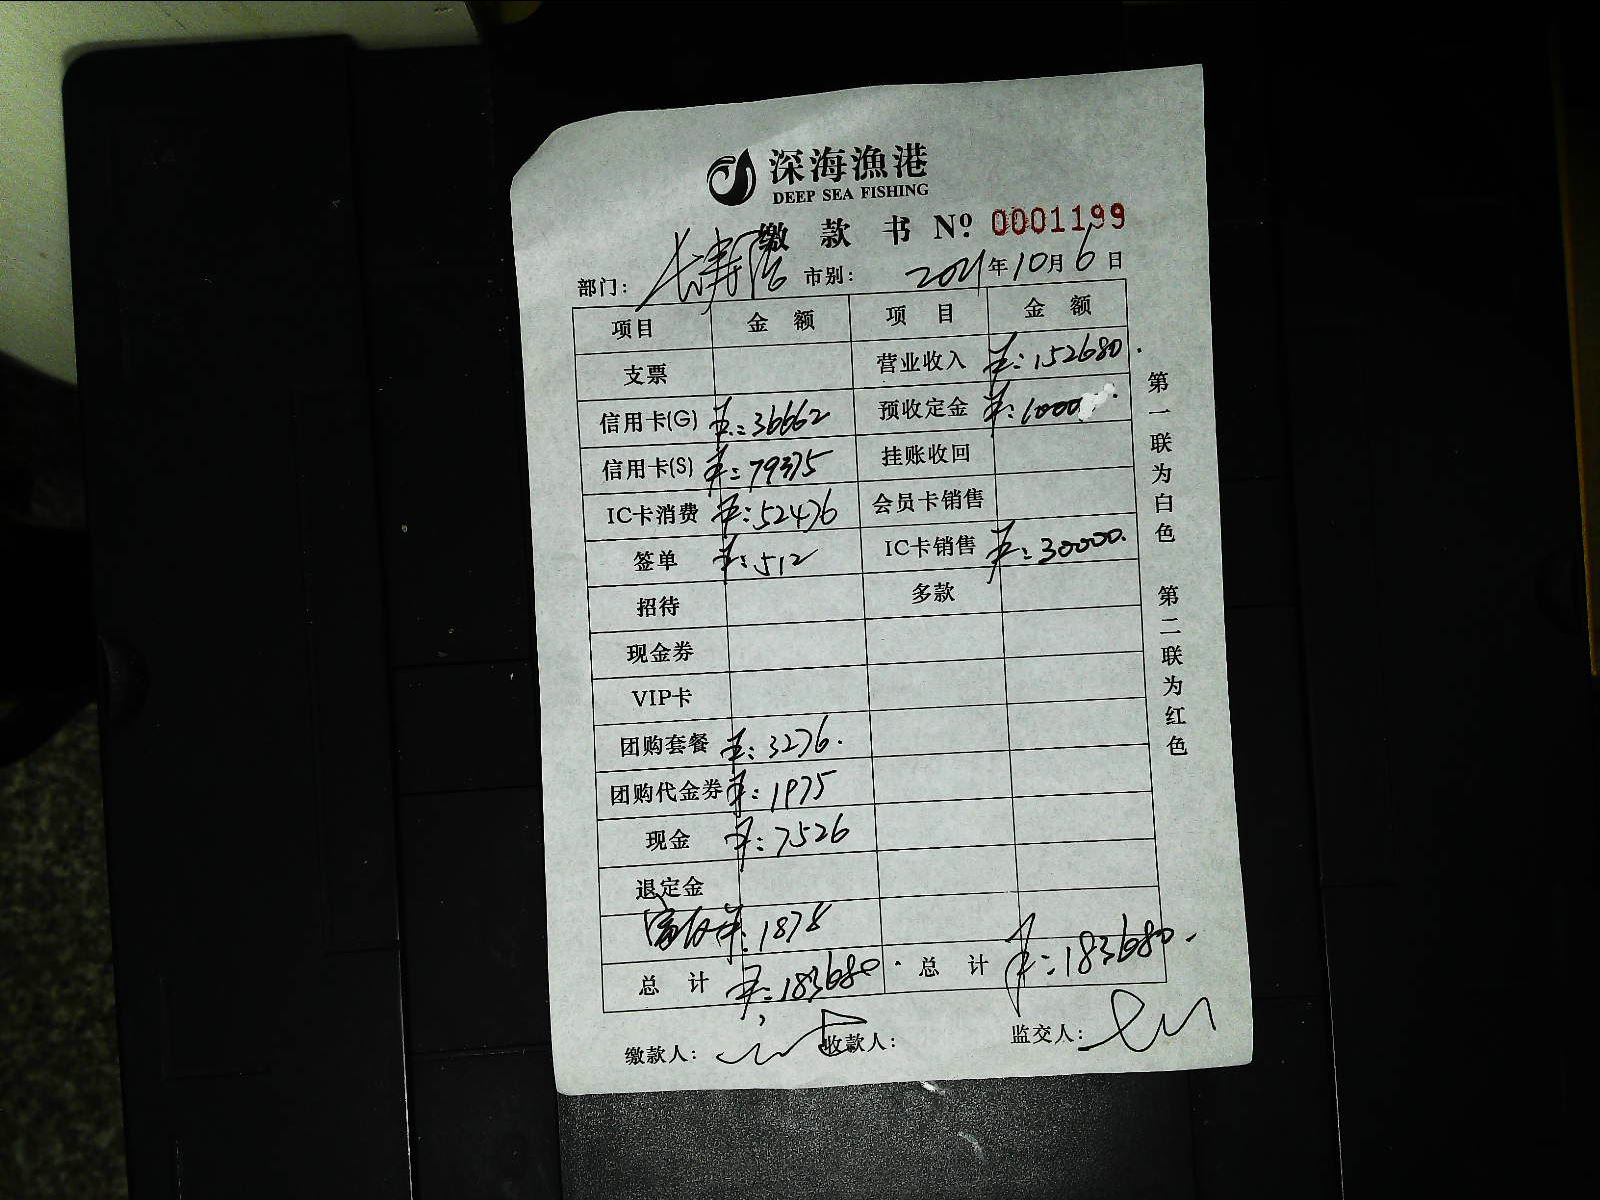 深海漁港
DEEP SEA FISHING
缴款书 Nº: 0001199
部门: 市别: 2021年10月6日
项目 金额 项目 金额
支票 营业收入 ¥:152680.
信用卡(G) ¥:36662 预收定金 ¥:1000
信用卡(S) ¥:79375 挂账收回
IC卡消费 ¥:52476 会员卡销售
签单 ¥:512 IC卡销售 ¥:30000.
招待 多款
现金券
VIP卡
团购套餐 ¥:3276.
团购代金券 ¥:1975
现金 ¥:7526
退定金
¥:1878
总计 ¥:183680. 总计 ¥:183680.
缴款人: 收款人: 监交人:
第一联为白色 第二联为红色